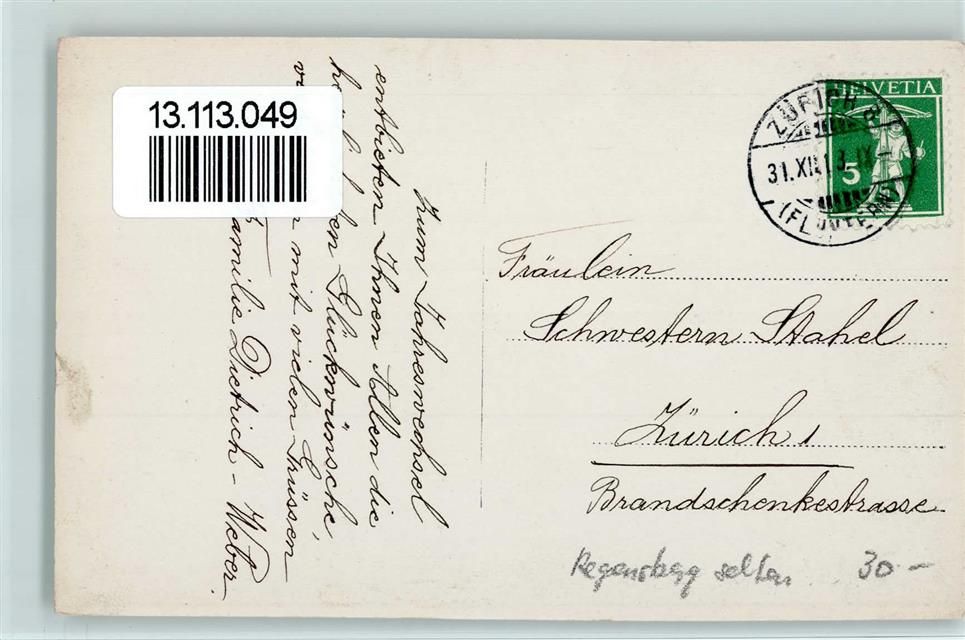 13.113.049
HELVETIA
5
ZÜRICH
31.XII.13.IX-
(FLUNTERN)
Zum Jahreswechsel
entbieten Ihnen Allen die
Glückwünsche,
mit vielen Grüssen
Familie Dietrich - Weber.
Fräulein
Schwestern Stahel
Zürich 1
Brandschenkestrasse
Regensberg selten 30.-